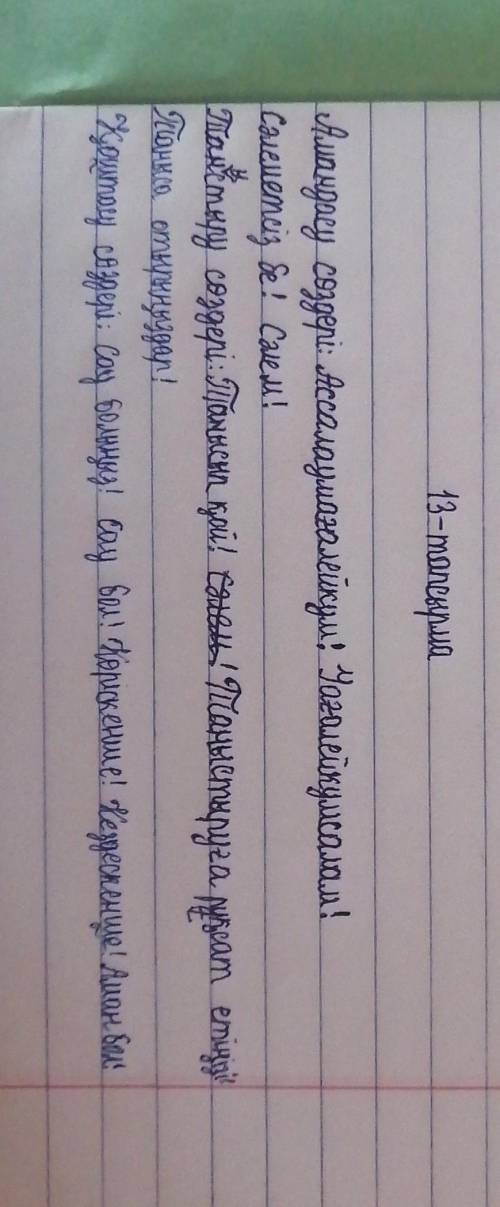 13-тапсырма
Амандасу сөздері: Ассалаумағалейкум! Уағалейкумсалам!
Сәлеметсіз бе! Сәлем!
Таныстыру сөздері: Танысып қой! Сәлем! Таныстыруға рұқсат етіңіз!
Таныса отырыңыздар!
Қоштасу сөздері: Сау болыңыз! Сау бол! Көріскенше! Кездескенше! Аман бол!